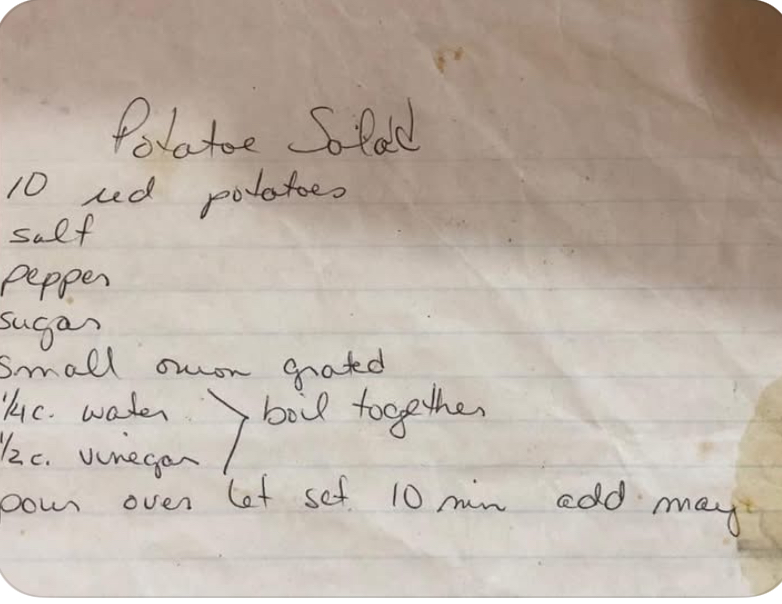 Potatoe Salad
10 red potatoes
salt
pepper
sugar
small onion grated
1/4 c. water > boil together
1/2 c. vinegar
pour over let set 10 min add may